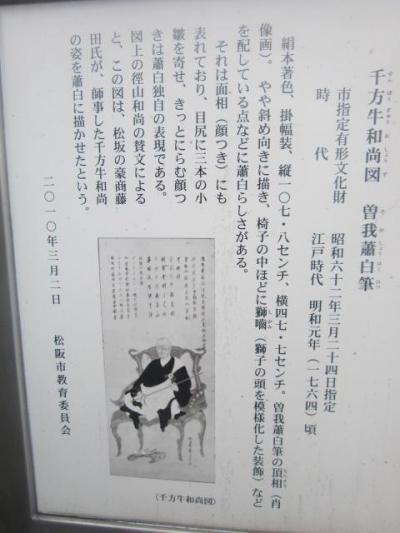 千方牛和尚図　曽我蕭白筆
市指定有形文化財　昭和六十二年三月二十四日指定
時　代　江戸時代　明和元年（一七六四）頃
絹本著色、掛幅装、縦一〇七・八センチ、横四七・七センチ。曽我蕭白筆の頂相（肖
像画）。やや斜め向きに描き、椅子の中ほどに獅嚙（獅子の頭を模様化した装飾）など
を配している点などに蕭白らしさがある。
それは面相（顔つき）にも
表れており、目尻に三本の小
皺を寄せ、きっとにらむ顔つ
きは蕭白独自の表現である。
図上の徑山和尚の賛文による
と、この図は、松坂の豪商藤
田氏が、師事した千方牛和尚
の姿を蕭白に描かせたという。
二〇一〇年三月二日
松阪市教育委員会
（千方牛和尚図）